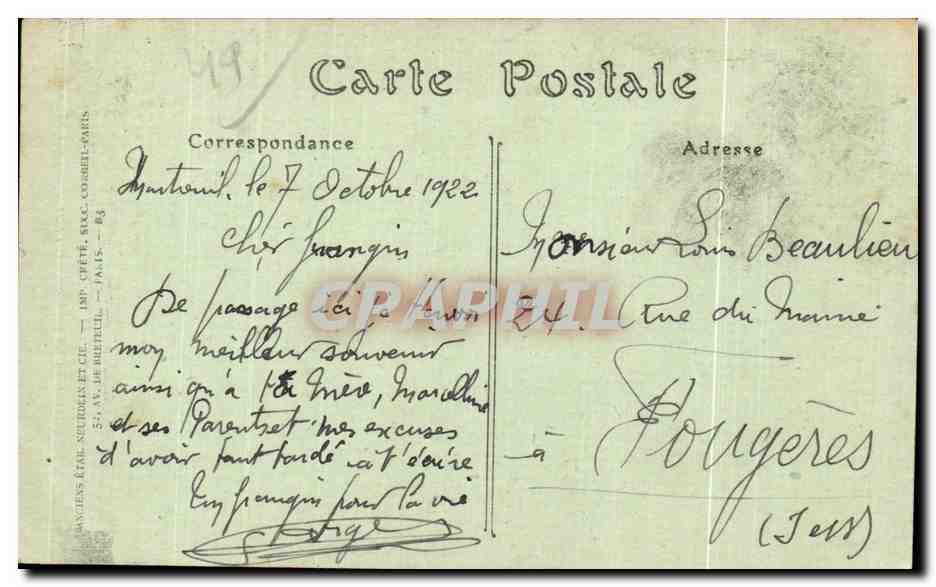 49
Carte Postale
Correspondance
Montreuil, le 7 Octobre 1922
Cher frangin
De passage ici, j'
mon meilleur souvenir
ainsi qu'à ta Mère, Marcelline
et ses Parents et mes excuses
d'avoir tant tardé à t'écrire
Ton frangin pour la vie
Georges
Adresse
Monsieur Louis Beaulieu
24. Rue du Maine
à Fougères
(I et V)
ANCIENS ÉTAB. NEURDEIN ET CIE. — IMP. CRÉTÉ, SUCC. CORBEIL-PARIS
52, AV. DE BRETEUIL. — PARIS. — B3
CPAPHIL